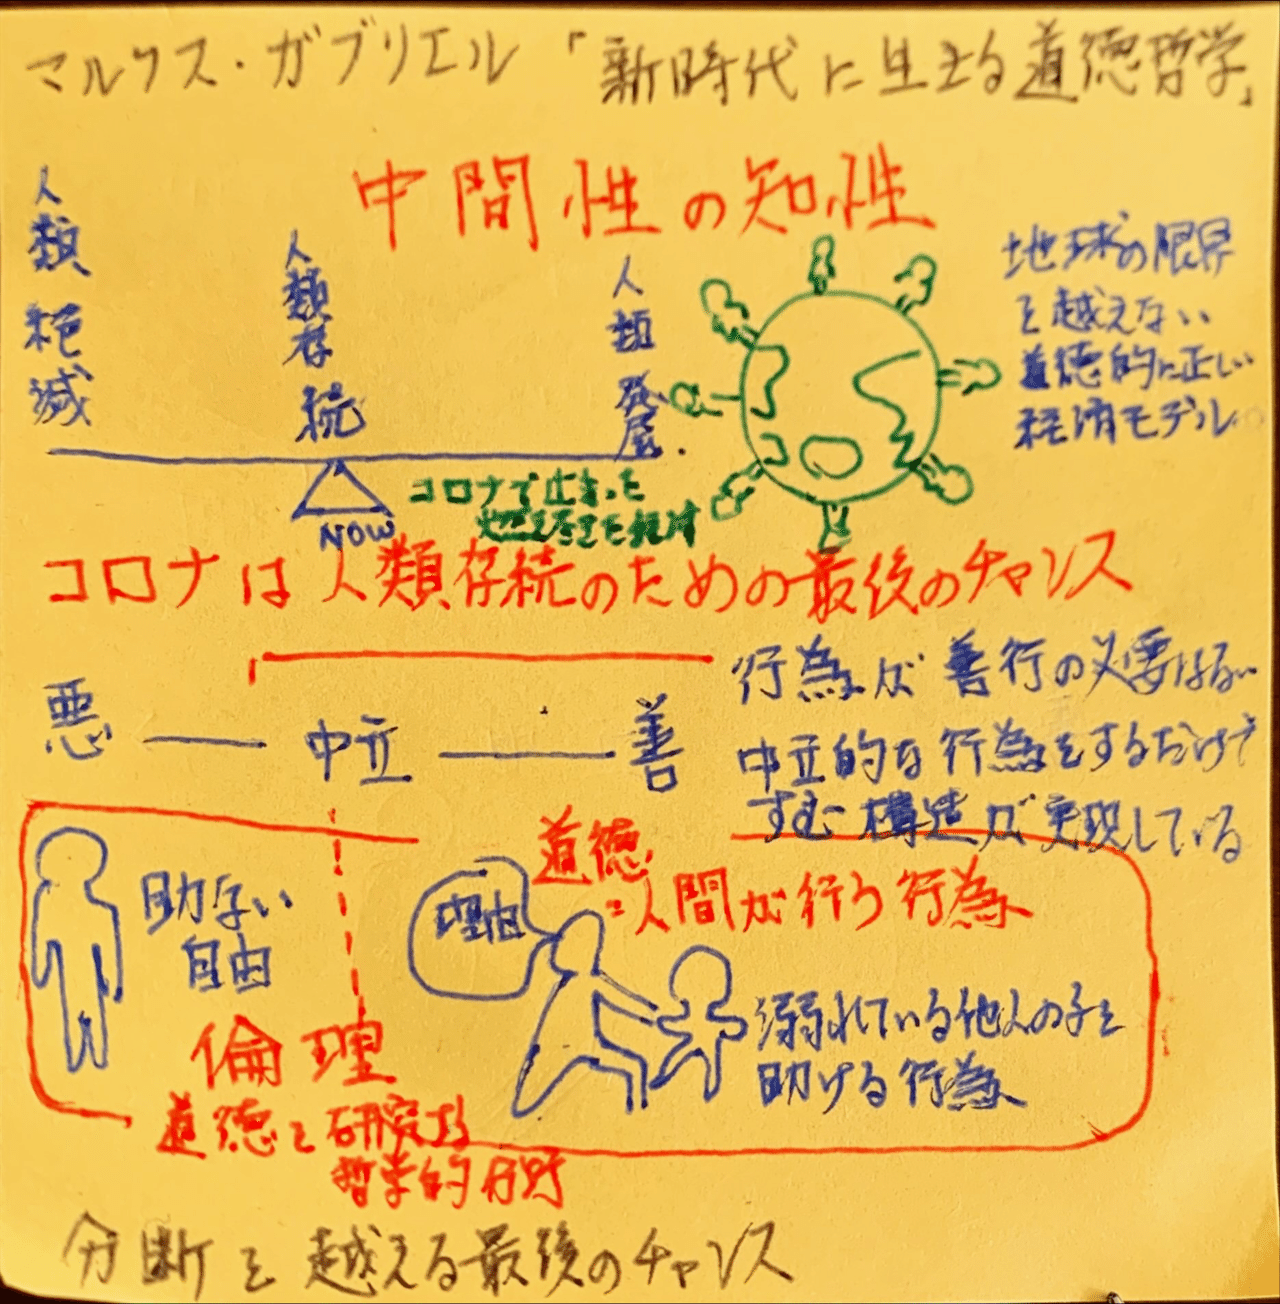 マルクス・ガブリエル「新時代に生きる道徳哲学」
中間性の知性
人類絶滅
人類存続
人類発展
地球の限界
を越えない
道徳的に正しい
経済モデル
NOW
コロナで止まった
燃え尽きた経済
コロナは人類存続のための最後のチャンス
悪
中立
善
行為が善行の必要はない
中立的な行為をするだけで
すむ構造が実現している
助けない
自由
理由
道徳
:人間が行う行為
溺れている他人の子を
助ける行為
倫理
道徳を研究する
哲学的分野
分断を越える最後のチャンス